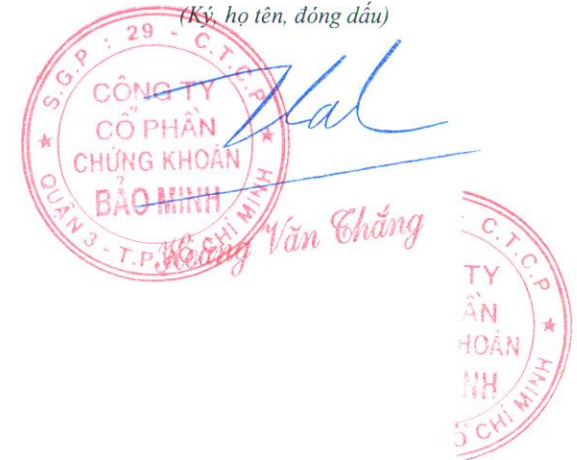 (Ký, họ tên, đóng dấu)
S.G.P : 29 - C.T.C.P
CÔNG TY
CỔ PHẦN
CHỨNG KHOÁN
BẢO MINH
QUẬN 3 - T.P HỒ CHÍ MINH
Hoàng Văn Thắng
C.T.C.P
TY
ẦN
HOÁN
NH
CHÍ MINH